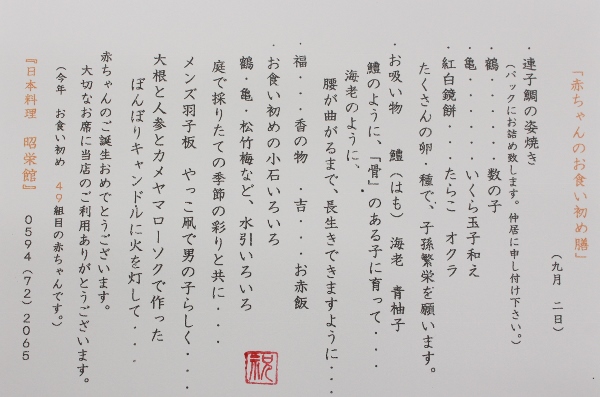 「赤ちゃんのお食い初め膳」
（九月　二日）
・連子鯛の姿焼き
（パックにお詰め致します。仲居に申し付け下さい。）
・鶴・・・・・・数の子
・亀・・・・・いくら玉子和え
・紅白鏡餅・・・・たらこ　オクラ
たくさんの卵・種で、子孫繁栄を願います。
・お吸い物　　鱧（はも）　海老　青柚子
鱧のように、『骨』のある子に育って・・・
海老のように、
腰が曲がるまで、長生きできますように・・・
・福・・・香の物　・吉・・・お赤飯
・お食い初めの小石いろいろ
鶴・亀・松竹梅など、水引いろいろ
庭で採りたての季節の彩りと共に・・・
メンズ羽子板　やっこ凧で男の子らしく・・・
大根と人参とカメヤマローソクで作った
ぼんぼりキャンドルに火を灯して・・・
赤ちゃんのご誕生おめでとうございます。
大切なお席に当店のご利用ありがとうございます。
（今年　お食い初め　４９組目の赤ちゃんです。）
『日本料理　昭栄館』　０５９４（７２）２０６５
祝